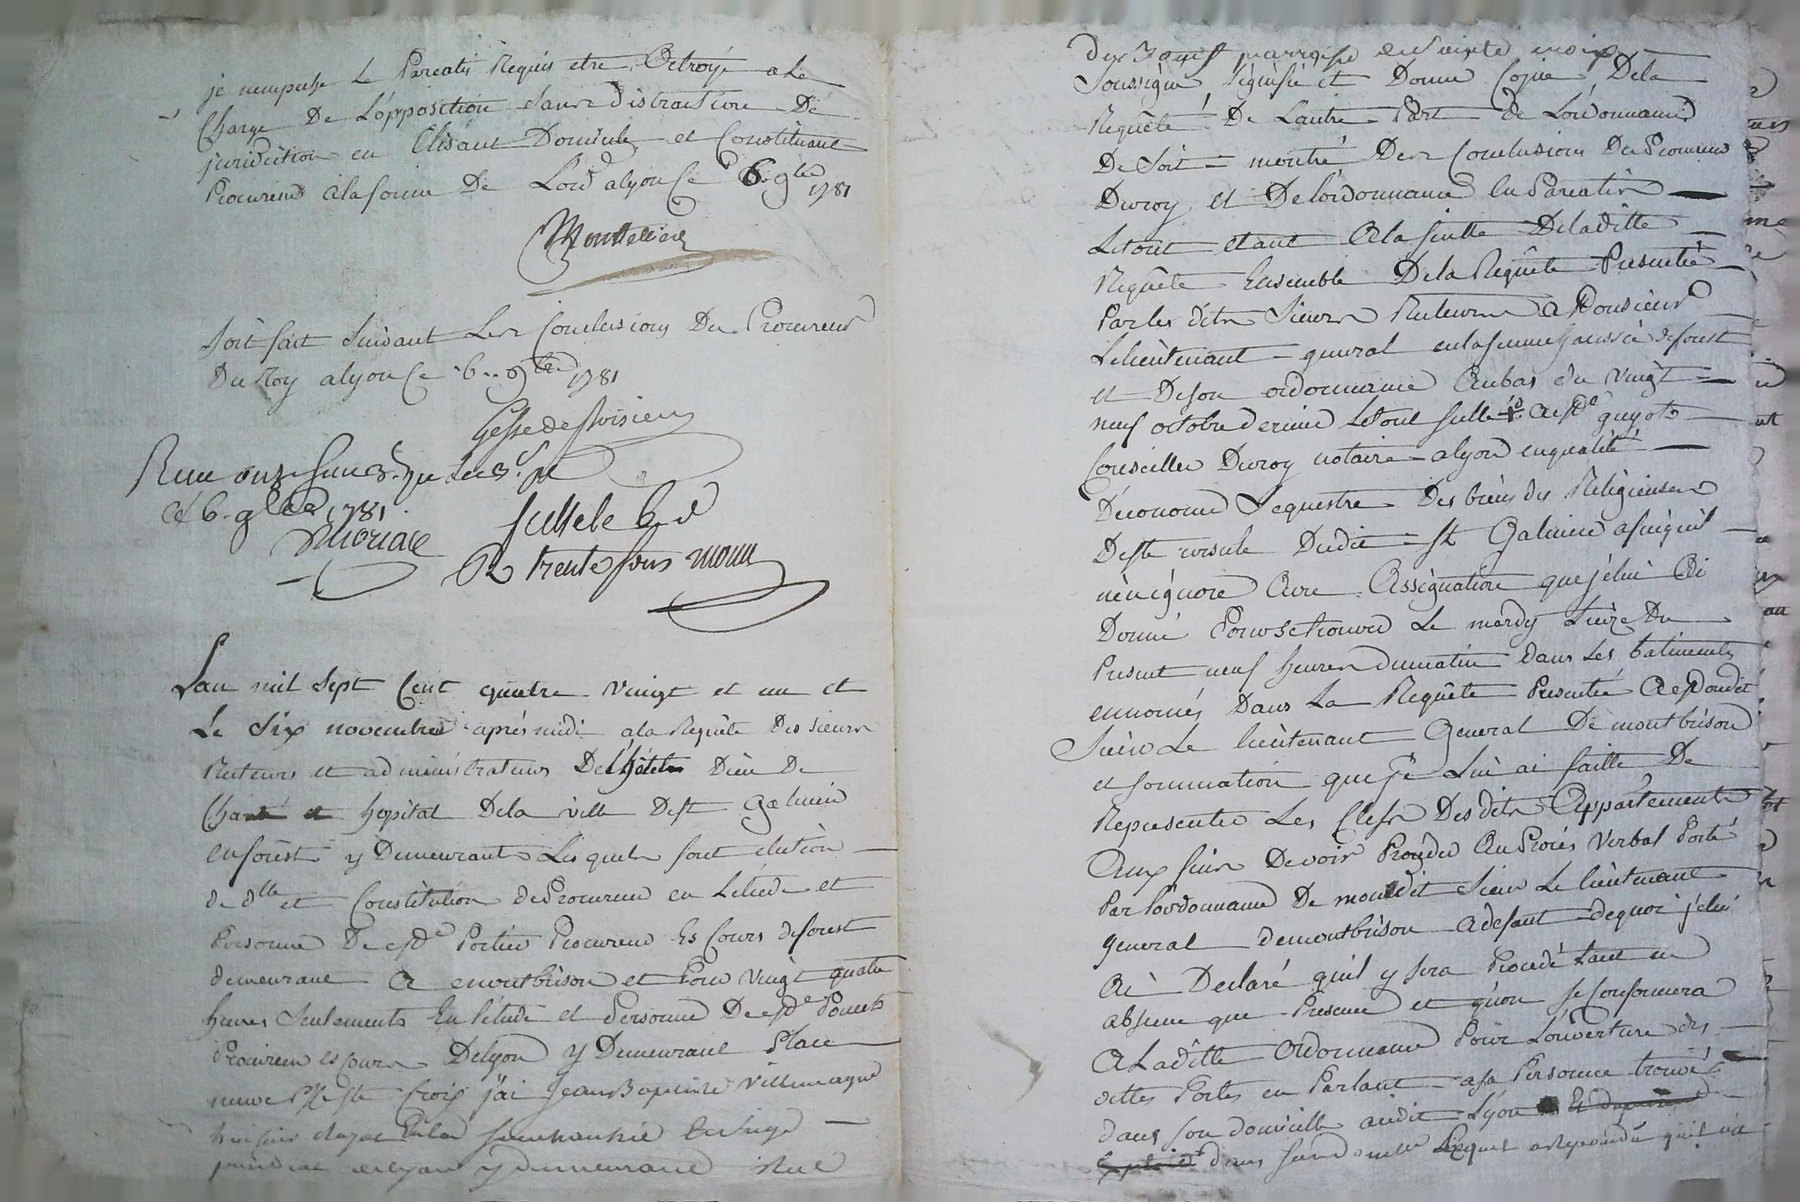 je nempeche Le Pareatis Requis etre Octroyé a la
Charge De Lopposition Sans distraction De
juridiction en Elisant Domicile et Constituant
Procureur a la forme De Lord alyon Ce 6 9bre 1781
Soit fait Suivant Les Conclusions Du Procureur
Du Roy alyon Ce 6 9bre 1781
ce 6 9bre 1781
Scellé le
trente sous
Lan mil sept Cent quatre vingt et un et
Le Six novembre après midi a la Requête Des sieurs
Recteurs et administrateurs De l'hôtel Dieu De
Charité et hopital De la ville De St Galmier
en forêst y Demeurants Lesquels font election
de dlle et Constitution de Procureur en Letude et
Personne De Me Portier Procureur Es Cours de forest
demeurant A montbrison et Pour Vingt quatre
heures Seulements En L'étude et Personne De Me
Procureur es Cours De lyon y Demeurant Place
neuve Ste Croix j'ai Jean Baptiste Villemagne
huissier Royal En la Senechaussée Et Siege
presidial de lyon y demeurant Rue
des Boeuf parroisse de Sainte croix
Soussigné Signifié et Donné Copie De la
Requête De L'autre Part de L'ordonnance
De Soit montré Des Conclusions Du Procureur
Du roy et De l'ordonnance En Pareatis
Le tout etant A la suitte De laditte
Requête Ensemble De la Requête Presentée
Par les dits Sieurs Recteurs A Monsieur
Le lieutenant general en la senechaussée de forest
et De son ordonnance Au bas du Vingt
neuf octobre dernier Le tout Scellé A Me guyot
Conseiller Du roy notaire a lyon en qualité
D'econome Sequestre Des biens des Religieuses
De Ste ursule Dudit St Galmier afin qu'il
n'en ignore Avec Assignation que je lui Ai
Donné Pour se trouver Le mardy treize Du
Present neuf heures du matin dans Les batiments
ennoncés Dans La Requête Presentée A Mondit
Sieur Le lieutenant General De montbrison
et sommation que je Lui ai faitte De
Representer Les Clefs Des dits Appartements
Aux fins De voir Proceder Au Procès Verbal Porté
Par l'ordonnance De mondit Sieur Le lieutenant
General de montbrison A defaut de quoi je lui
Ai Declaré qu'il y sera Procedé tant en
absence que Presence et qu'on se conformera
A Laditte Ordonnance Pour L'ouverture des
dittes Portes en Parlant a sa Personne trouvé
dans son domicille audit Lyon
dans Lequel a repondu qu'il n'a